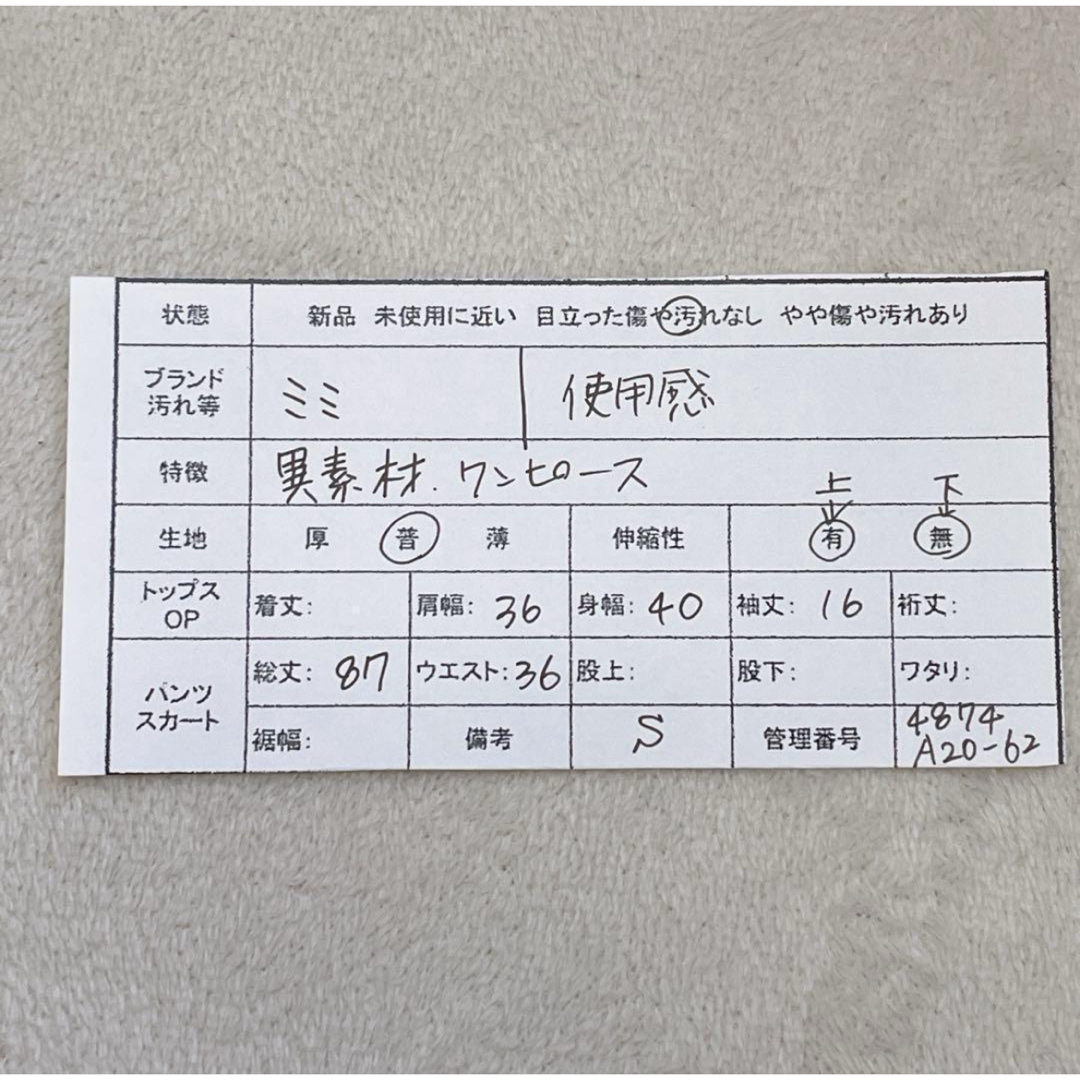 状態 新品 未使用に近い 目立った傷や汚れなし やや傷や汚れあり
ブランド
汚れ等 ミミ 使用感
特徴 異素材.ワンピース
上 下
生地 厚 普 薄 伸縮性 有 無
トップス
OP 着丈: 肩幅: 36 身幅: 40 袖丈: 16 裄丈:
パンツ
スカート 総丈: 87 ウエスト: 36 股上: 股下: ワタリ:
裾幅: 備考 S 管理番号 4874
A20-62